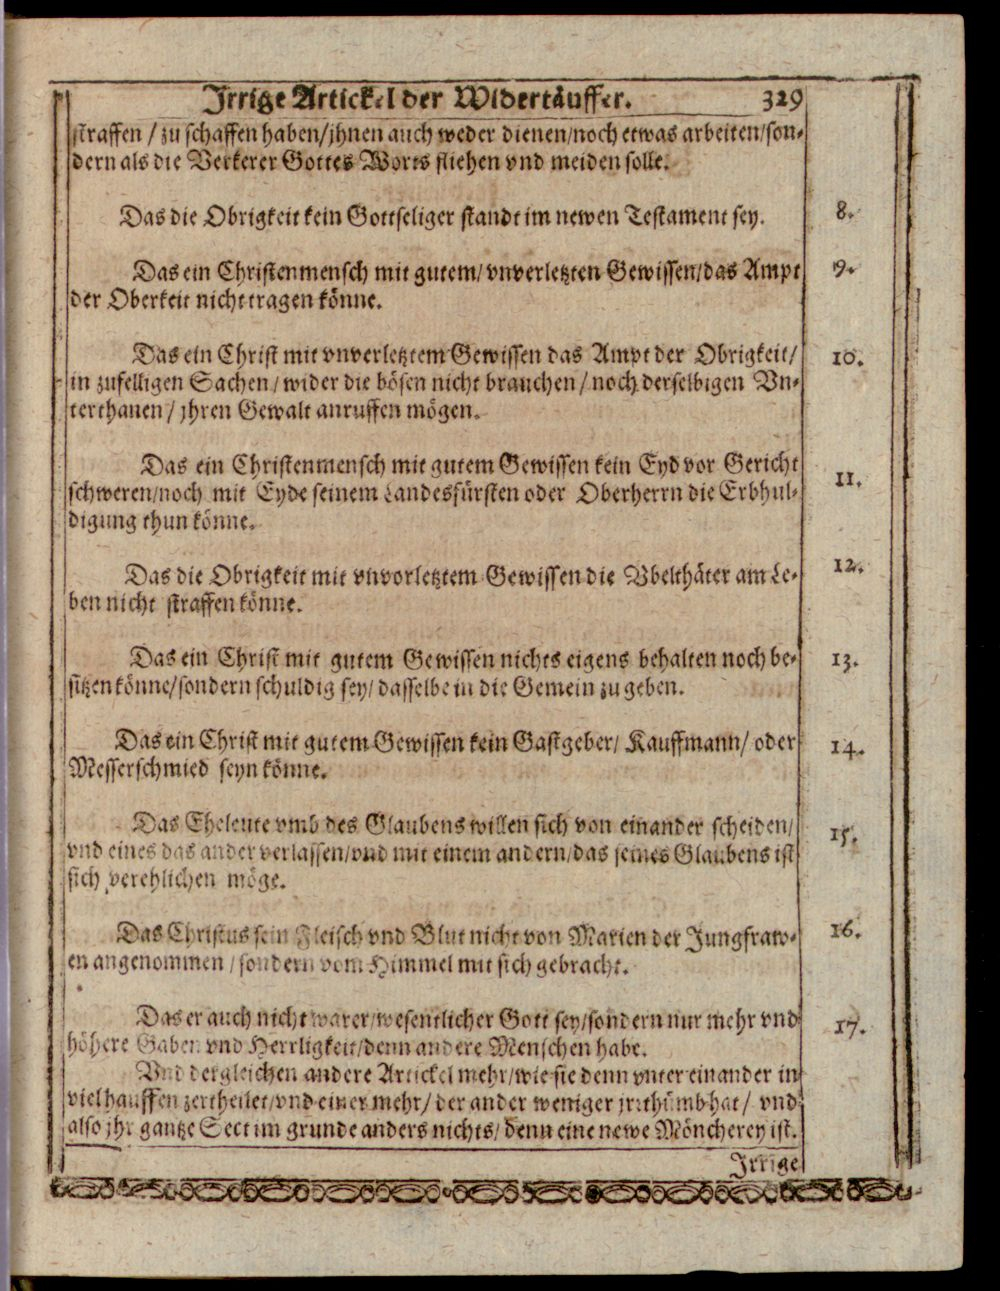 Irrige Artickel der Widertäuffer. 329
straffen / zu schaffen haben/jhnen auch weder dienen/noch etwas arbeiten/son-
dern als die Verkerer Gottes Worts fliehen vnd meiden solle.
Das die Obrigkeit kein Gottseliger standt im newen Testament sey. 8.
Das ein Christenmensch mit gutem/ vnverletzten Gewissen/das Ampt 9.
der Oberkeit nicht tragen könne.
Das ein Christ mit vnverletztem Gewissen das Ampt der Obrigkeit/ 10.
in zufelligen Sachen / wider die bösen nicht brauchen / noch derselbigen Vn-
terthanen / jhren Gewalt anruffen mögen.
Das ein Christenmensch mit gutem Gewissen kein Eyd vor Gericht
schweren/noch mit Eyde seinem Landesfürsten oder Oberherrn die Erbhul- 11.
digung thun könne.
Das die Obrigkeit mit vnvorletztem Gewissen die Vbelthäter am Le- 12.
ben nicht straffen könne.
Das ein Christ mit gutem Gewissen nichts eigens behalten noch be- 13.
sitzen könne/sondern schuldig sey/ dasselbe in die Gemein zu geben.
Das ein Christ mit gutem Gewissen kein Gastgeber/ Kauffmann/ oder 14.
Messerschmied seyn könne.
Das Eheleute vmb des Glaubens willen sich von einander scheiden/ 15.
vnd eines das ander verlassen/vnd mit einem andern/das seines Glaubens ist
sich verehlichen möge.
Das Christus sein Fleisch vnd Blut nicht von Marien der Jungfraw- 16.
en angenommen / sondern vom Himmel mit sich gebracht.
Das er auch nicht warer/wesentlicher Gott sey/sondern nur mehr vnd 17.
höhere Gaben vnd Herrligkeit/denn andere Menschen habe.
Vnd dergleichen andere Artickel mehr/wie sie denn vnter einander in
viel hauffen zertheilet/vnd einer mehr/ der ander weniger jrrthumb hat/ vnd
also jhr gantze Sect im grunde anders nichts/ denn eine newe Möncherey ist.
Irrige